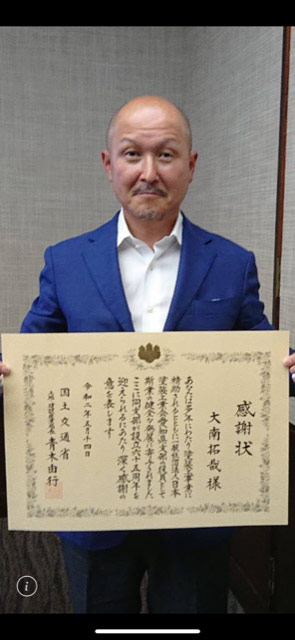 感謝状
大南拓哉様
あなたは多年にわたり塗装工事業に
精励されるとともに一般社団法人日本
塗装工業会愛知県支部の役員として
斯業の健全な発展に寄与されました
ここに同支部が設立六十五周年を
迎えられるにあたり深く感謝の
意を表します
令和二年五月十四日
国土交通省
青木由行